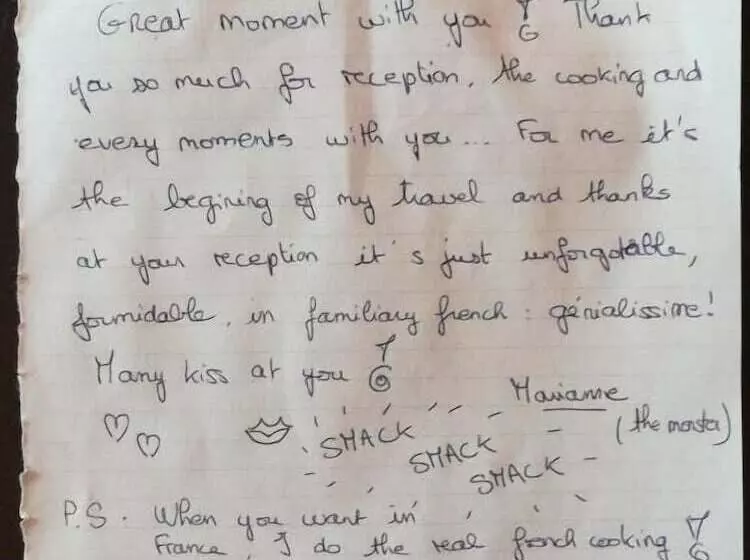 Great moment with you ! Thank
you so much for reception, the cooking and
every moments with you... For me it's
the begining of my travel and thanks
at your reception it's just unforgotable,
formidable, in familiary french : génialissime!
Many kiss at you !
Marianne
(the monster)
SMACK
SMACK
SMACK
P.S. When you want in
France, I do the real french cooking !